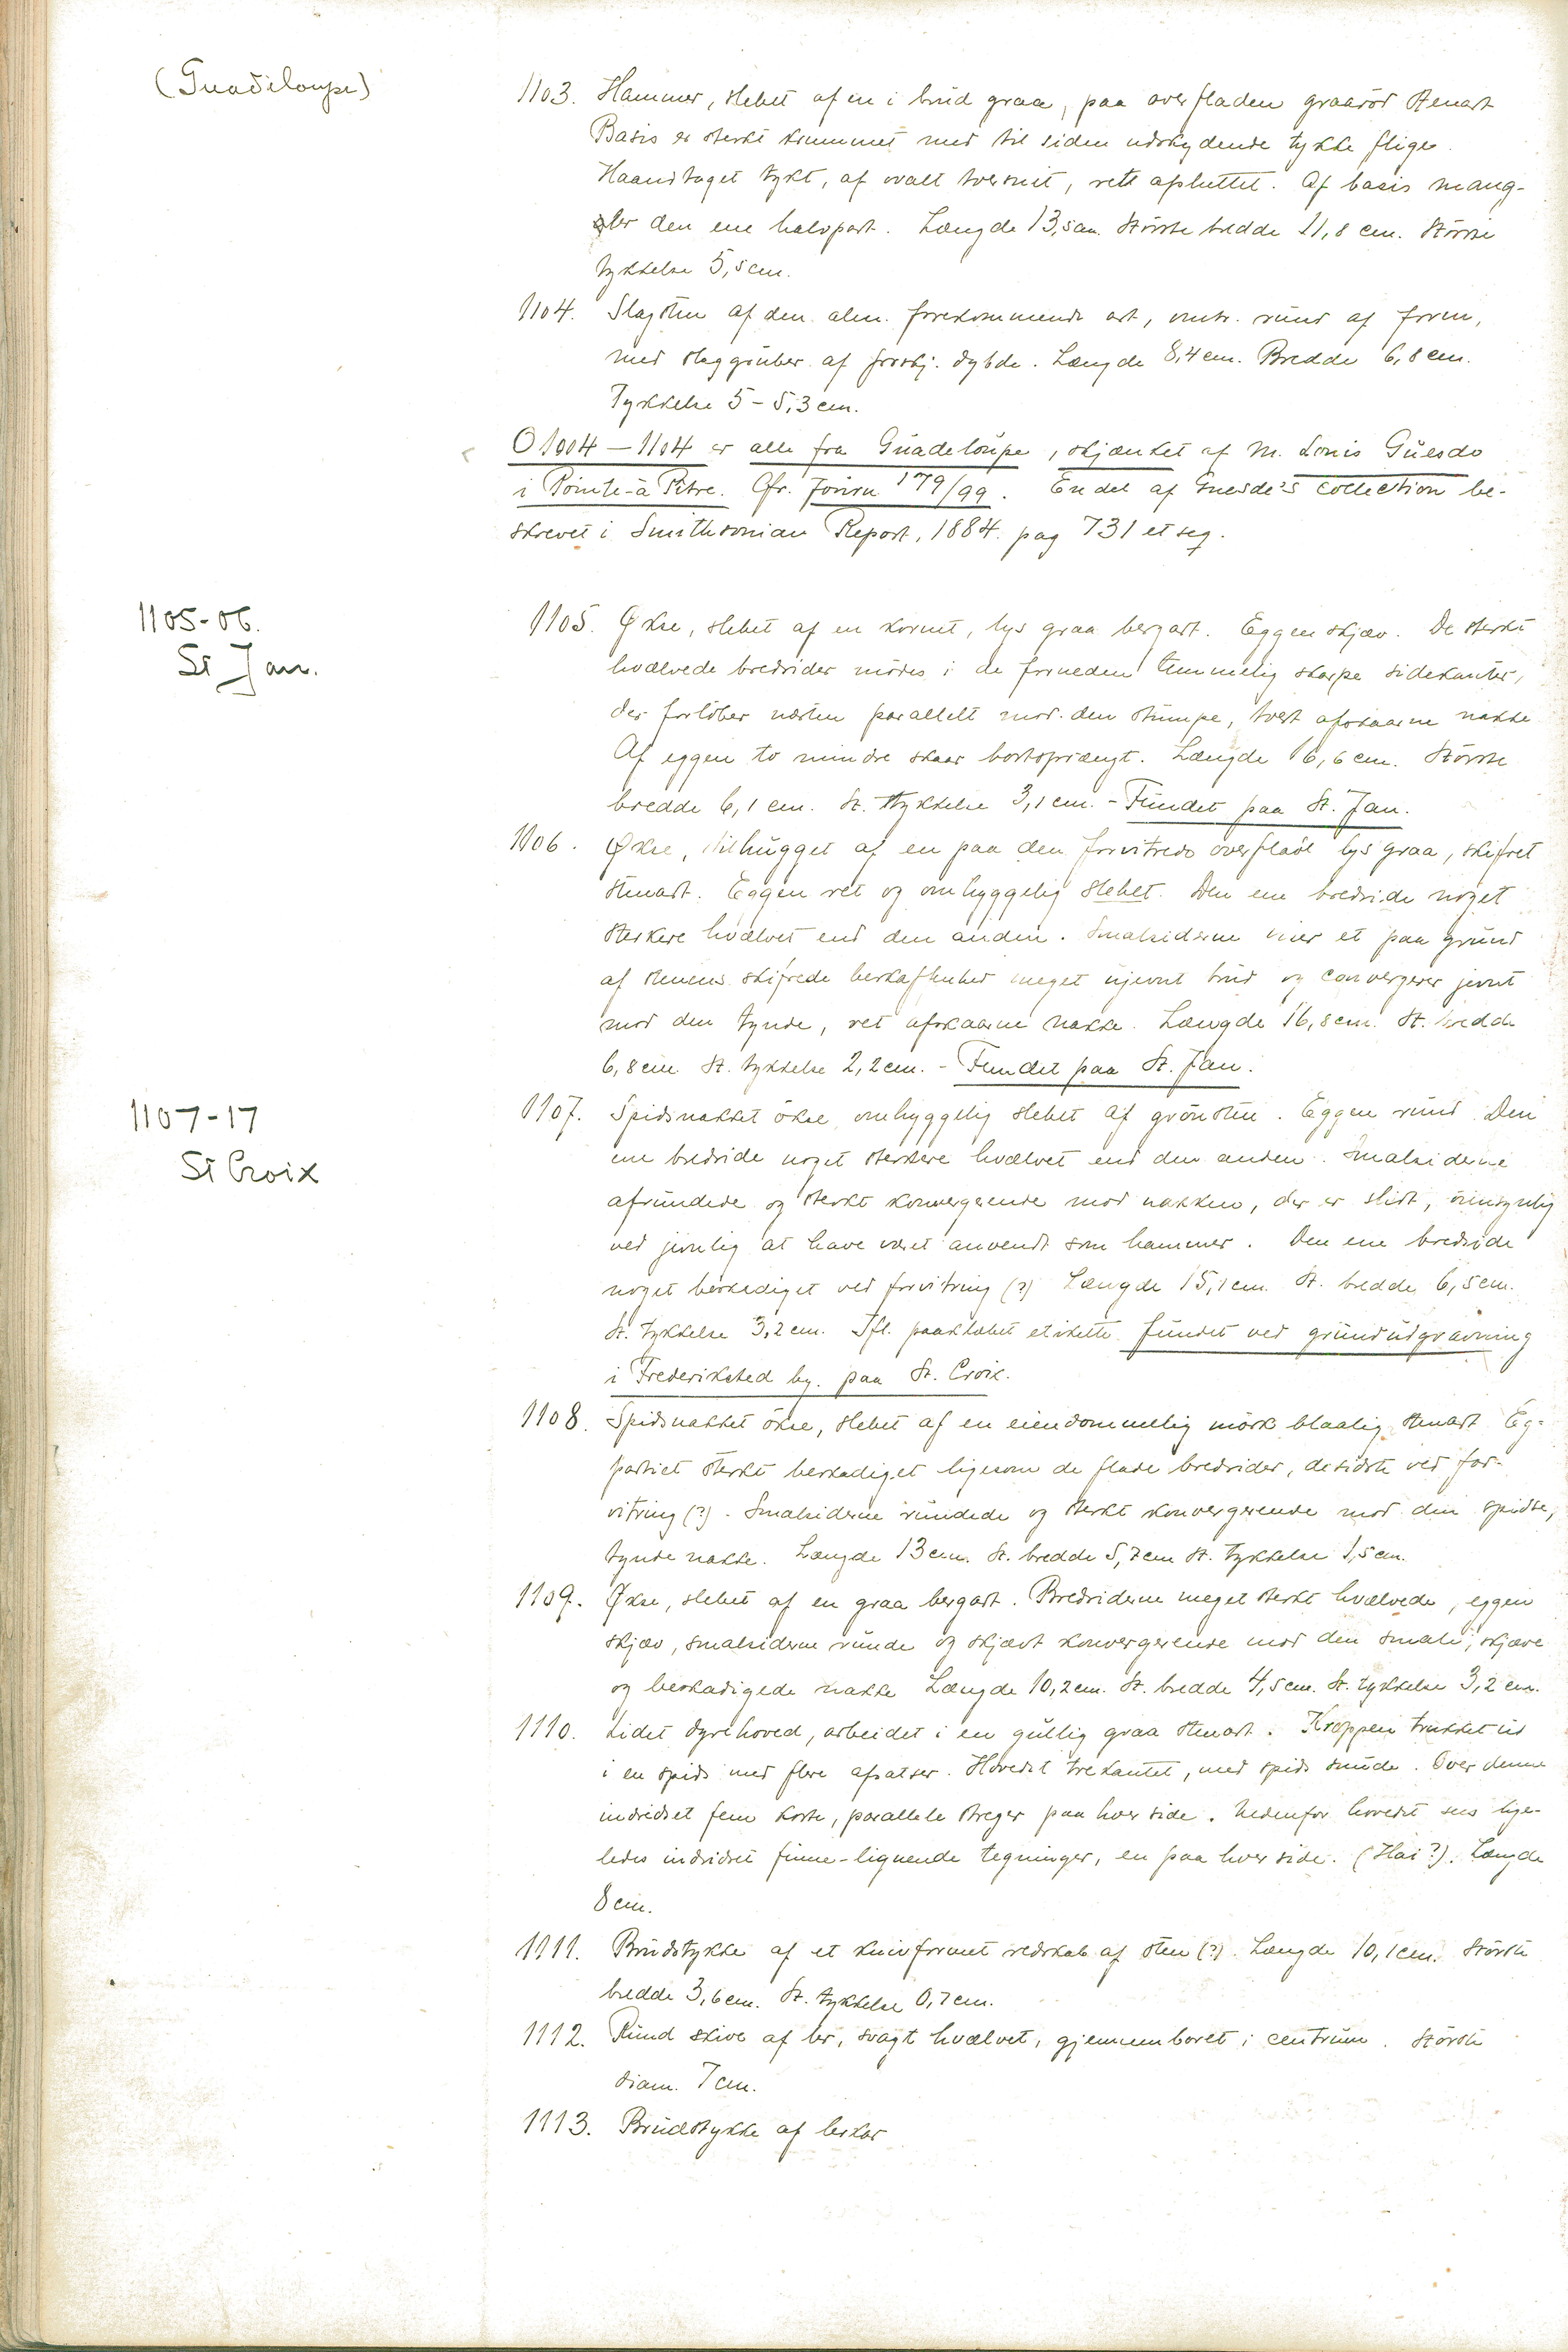 (Guadeloupe)
1103. Hammer, slebet af en i brud graa, paa overfladen graarød stenart
Basis er sterkt krummet med til siden udskydende tykke fliger.
Haandtaget tykt, af ovalt tversnit, rett afsluttet. Af basis mang-
ler den ene halvpart. Længde 13,5 cm. Største bredde 11,8 cm. Største
tykkelse 5,5 cm.
1104. Slagsten af den alm. forekommende art, omtr. rund af form,
med slaggruber af forskj. dybde. Længde 8,4 cm. Bredde 6,8 cm.
Tykkelse 5 - 5,3 cm.
O 1004 - 1104 er alle fra Guadeloupe, skjænket af M. Louis Guesde
i Pointe-à Pitre. Cfr. Journ 179/99. En del af Guesde's collection be-
skrevet i Smithsonian Report, 1884. pag 731 et seq.
1105-06.
St Jan.
1105. Økse, slebet af en kornet, lys graa bergart. Eggen skjæv. De sterkt
hvælvede bredsider mødes i de forneden temmelig skarpe sidekanter,
der forløber næsten parallelt mod den stumpe, tvert afskaarne nakke
Af eggen to mindre skaar bortsprængt. Længde 16,6 cm. Største
bredde 6,1 cm. St. tykkelse 3,1 cm. - Fundet paa St. Jan.
1106. Økse, tilhugget af en paa den forvitrede overflade lys graa, skifret
stenart. Eggen ret og omhyggelig slebet. Den ene bredside noget
sterkere hvælvet end den anden. Smalsiderne viser et paa grund
af stenens skifrede beskaffenhed meget ujevnt brud og convergerer jevnt
mod den tynde, ret afskaarne nakke. Længde 16,8 cm. St. bredde
6,8 cm. St. tykkelse 2,2 cm. - Fundet paa St. Jan.
1107-17
St Croix
1107. Spidsnakket økse omhyggelig slebet af grønsten. Eggen rund. Den
ene bredside noget sterkere hvælvet end den anden. Smalsiderne
afrundede og sterkt konvergerende mod nakken, der er slidt, øiensynlig
ved jevnlig at have været anvendt som hammer. Den ene bredside
noget beskadiget ved forvitring (?) Længde 15,1 cm. St. bredde 6,5 cm.
St. tykkelse 3,2 cm. Ifl. paaklæbet etikette fundet ved grundudgravning
i Frederiksted by. paa St. Croix.
1108. Spidsnakket økse, slebet af en eiendommelig mørk blaalig stenart Eg-
partiet sterkt beskadiget ligesom de flade bredsider, de sidste ved for-
vitring (?). Smalsiderne rundede og sterkt konvergerende mod den spidse,
tynde nakke. Længde 13 cm. St. bredde 5,7 cm St. tykkelse 1,5 cm.
1109. Økse, slebet af en graa bergart. Bredsiderne meget sterkt hvælvede, eggen
skjæv, smalsiderne runde og skjævt konvergerende mod den smale, skjæve
og beskadigede nakke Længde 10,2 cm. St. bredde 4,5 cm. St. tykkelse 3,2 cm.
1110. Lidet dyrehoved, arbeidet i en gullig graa stenart. Kroppen trukket ud
i en spids med flere afsatser. Hovedet trekantet, med spids snude. Over denne
indridset fem korte, parallele streger paa hver side. Nedenfor hovedet sees lige-
ledes indridset finne-lignende tegninger, en paa hver side. (Hai?). Længde
8 cm.
1111. Brudstykke af et knivformet redskab af sten (?). Længde 10,1 cm. Største
bredde 3,6 cm. St. tykkelse 0,7 cm.
1112. Rund skive af ler, svagt hvælvet, gjennemboret i centrum. Største
diam. 7 cm.
1113. Brudstykke af lerkar